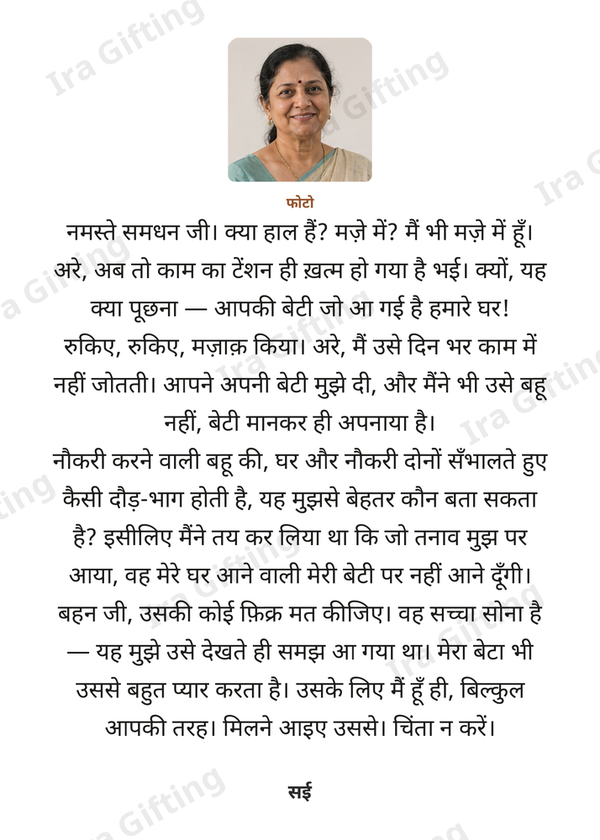 फोटो
नमस्ते समधन जी। क्या हाल हैं? मज़े में? मैं भी मज़े में हूँ।
अरे, अब तो काम का टेंशन ही ख़त्म हो गया है भई। क्यों, यह
क्या पूछना — आपकी बेटी जो आ गई है हमारे घर!
रुकिए, रुकिए, मज़ाक़ किया। अरे, मैं उसे दिन भर काम में
नहीं जोतती। आपने अपनी बेटी मुझे दी, और मैंने भी उसे बहू
नहीं, बेटी मानकर ही अपनाया है।
नौकरी करने वाली बहू की, घर और नौकरी दोनों सँभालते हुए
कैसी दौड़-भाग होती है, यह मुझसे बेहतर कौन बता सकता
है? इसीलिए मैंने तय कर लिया था कि जो तनाव मुझ पर
आया, वह मेरे घर आने वाली मेरी बेटी पर नहीं आने दूँगी।
बहन जी, उसकी कोई फ़िक्र मत कीजिए। वह सच्चा सोना है
— यह मुझे उसे देखते ही समझ आ गया था। मेरा बेटा भी
उससे बहुत प्यार करता है। उसके लिए मैं हूँ ही, बिल्कुल
आपकी तरह। मिलने आइए उससे। चिंता न करें।
सई
Ira Gifting
Ira Gifting
Ira Gifting
Ira Gifting
Ira Gifting
Ira Gifting
Ira Gifting
Ira Gifting
Ira Gifting